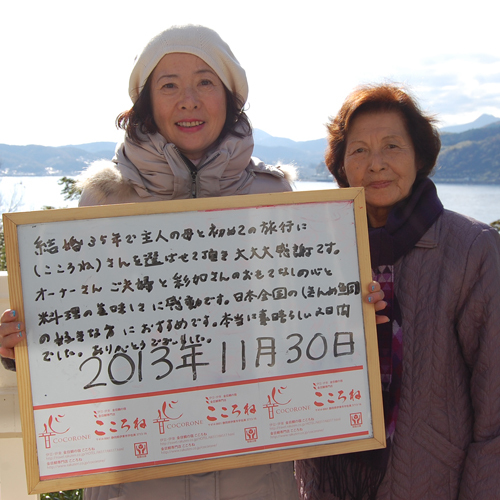 結婚35年で主人の母と初めての旅行に
(こころね)さんを選ばせて頂き大大大感謝です。
オーナーさんご夫婦と彩加さんのおもてなしの心と
料理の美味しさに感動です。日本全国の
の好きな方におすすめです。本当に素晴らしい2日間
でした。ありがとうございました。
2013年11月30日
こころね
COCORONE
こころね
COCORONE
こころね